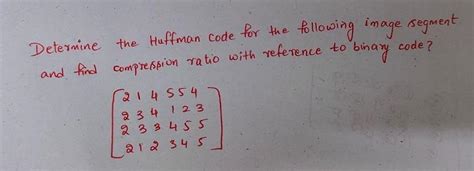 Determine the Huffman code for the following image segment
and find compression ratio with reference to binary code?
2 1 4 5 5 4
2 3 4 1 2 3
2 3 3 4 5 5
2 1 2 3 4 5